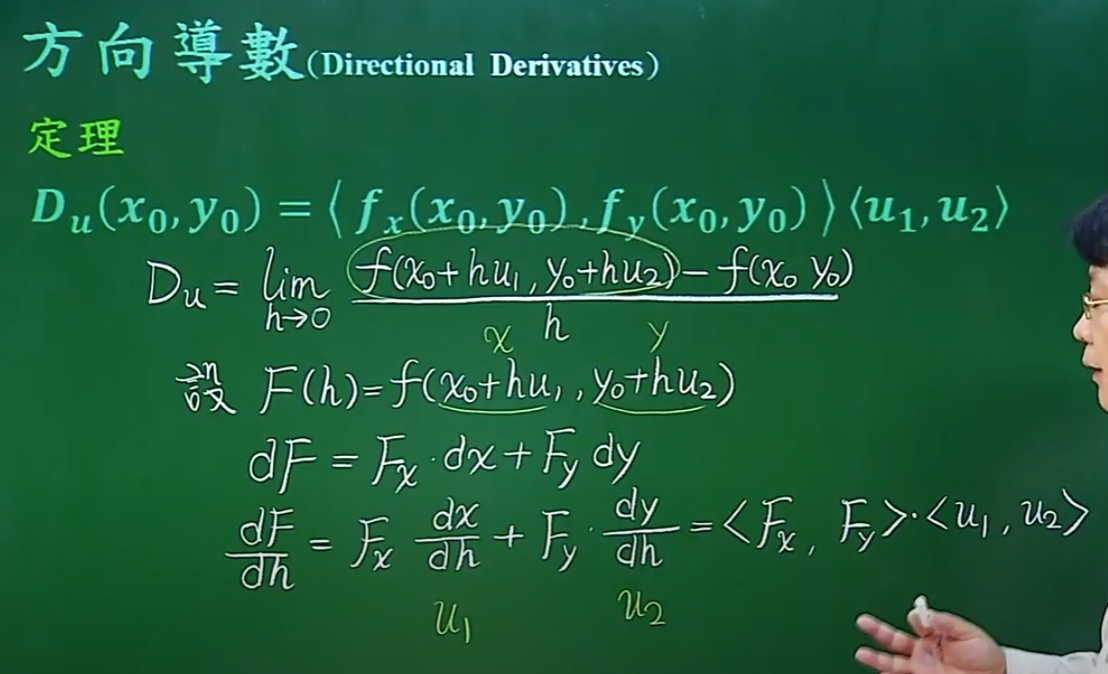 方向導數(Directional Derivatives)
定理
D_u(x₀,y₀) = ⟨f_x(x₀,y₀),f_y(x₀,y₀)⟩⟨u₁,u₂⟩
D_u = lim_{h→0} (f(x₀+hu₁, y₀+hu₂) − f(x₀ y₀)) / h
x y
設 F(h)=f(x₀+hu₁, y₀+hu₂)
dF = F_x·dx + F_y dy
dF/dh = F_x dx/dh + F_y · dy/dh = <F_x, F_y>·<u₁, u₂>
u₁ u₂